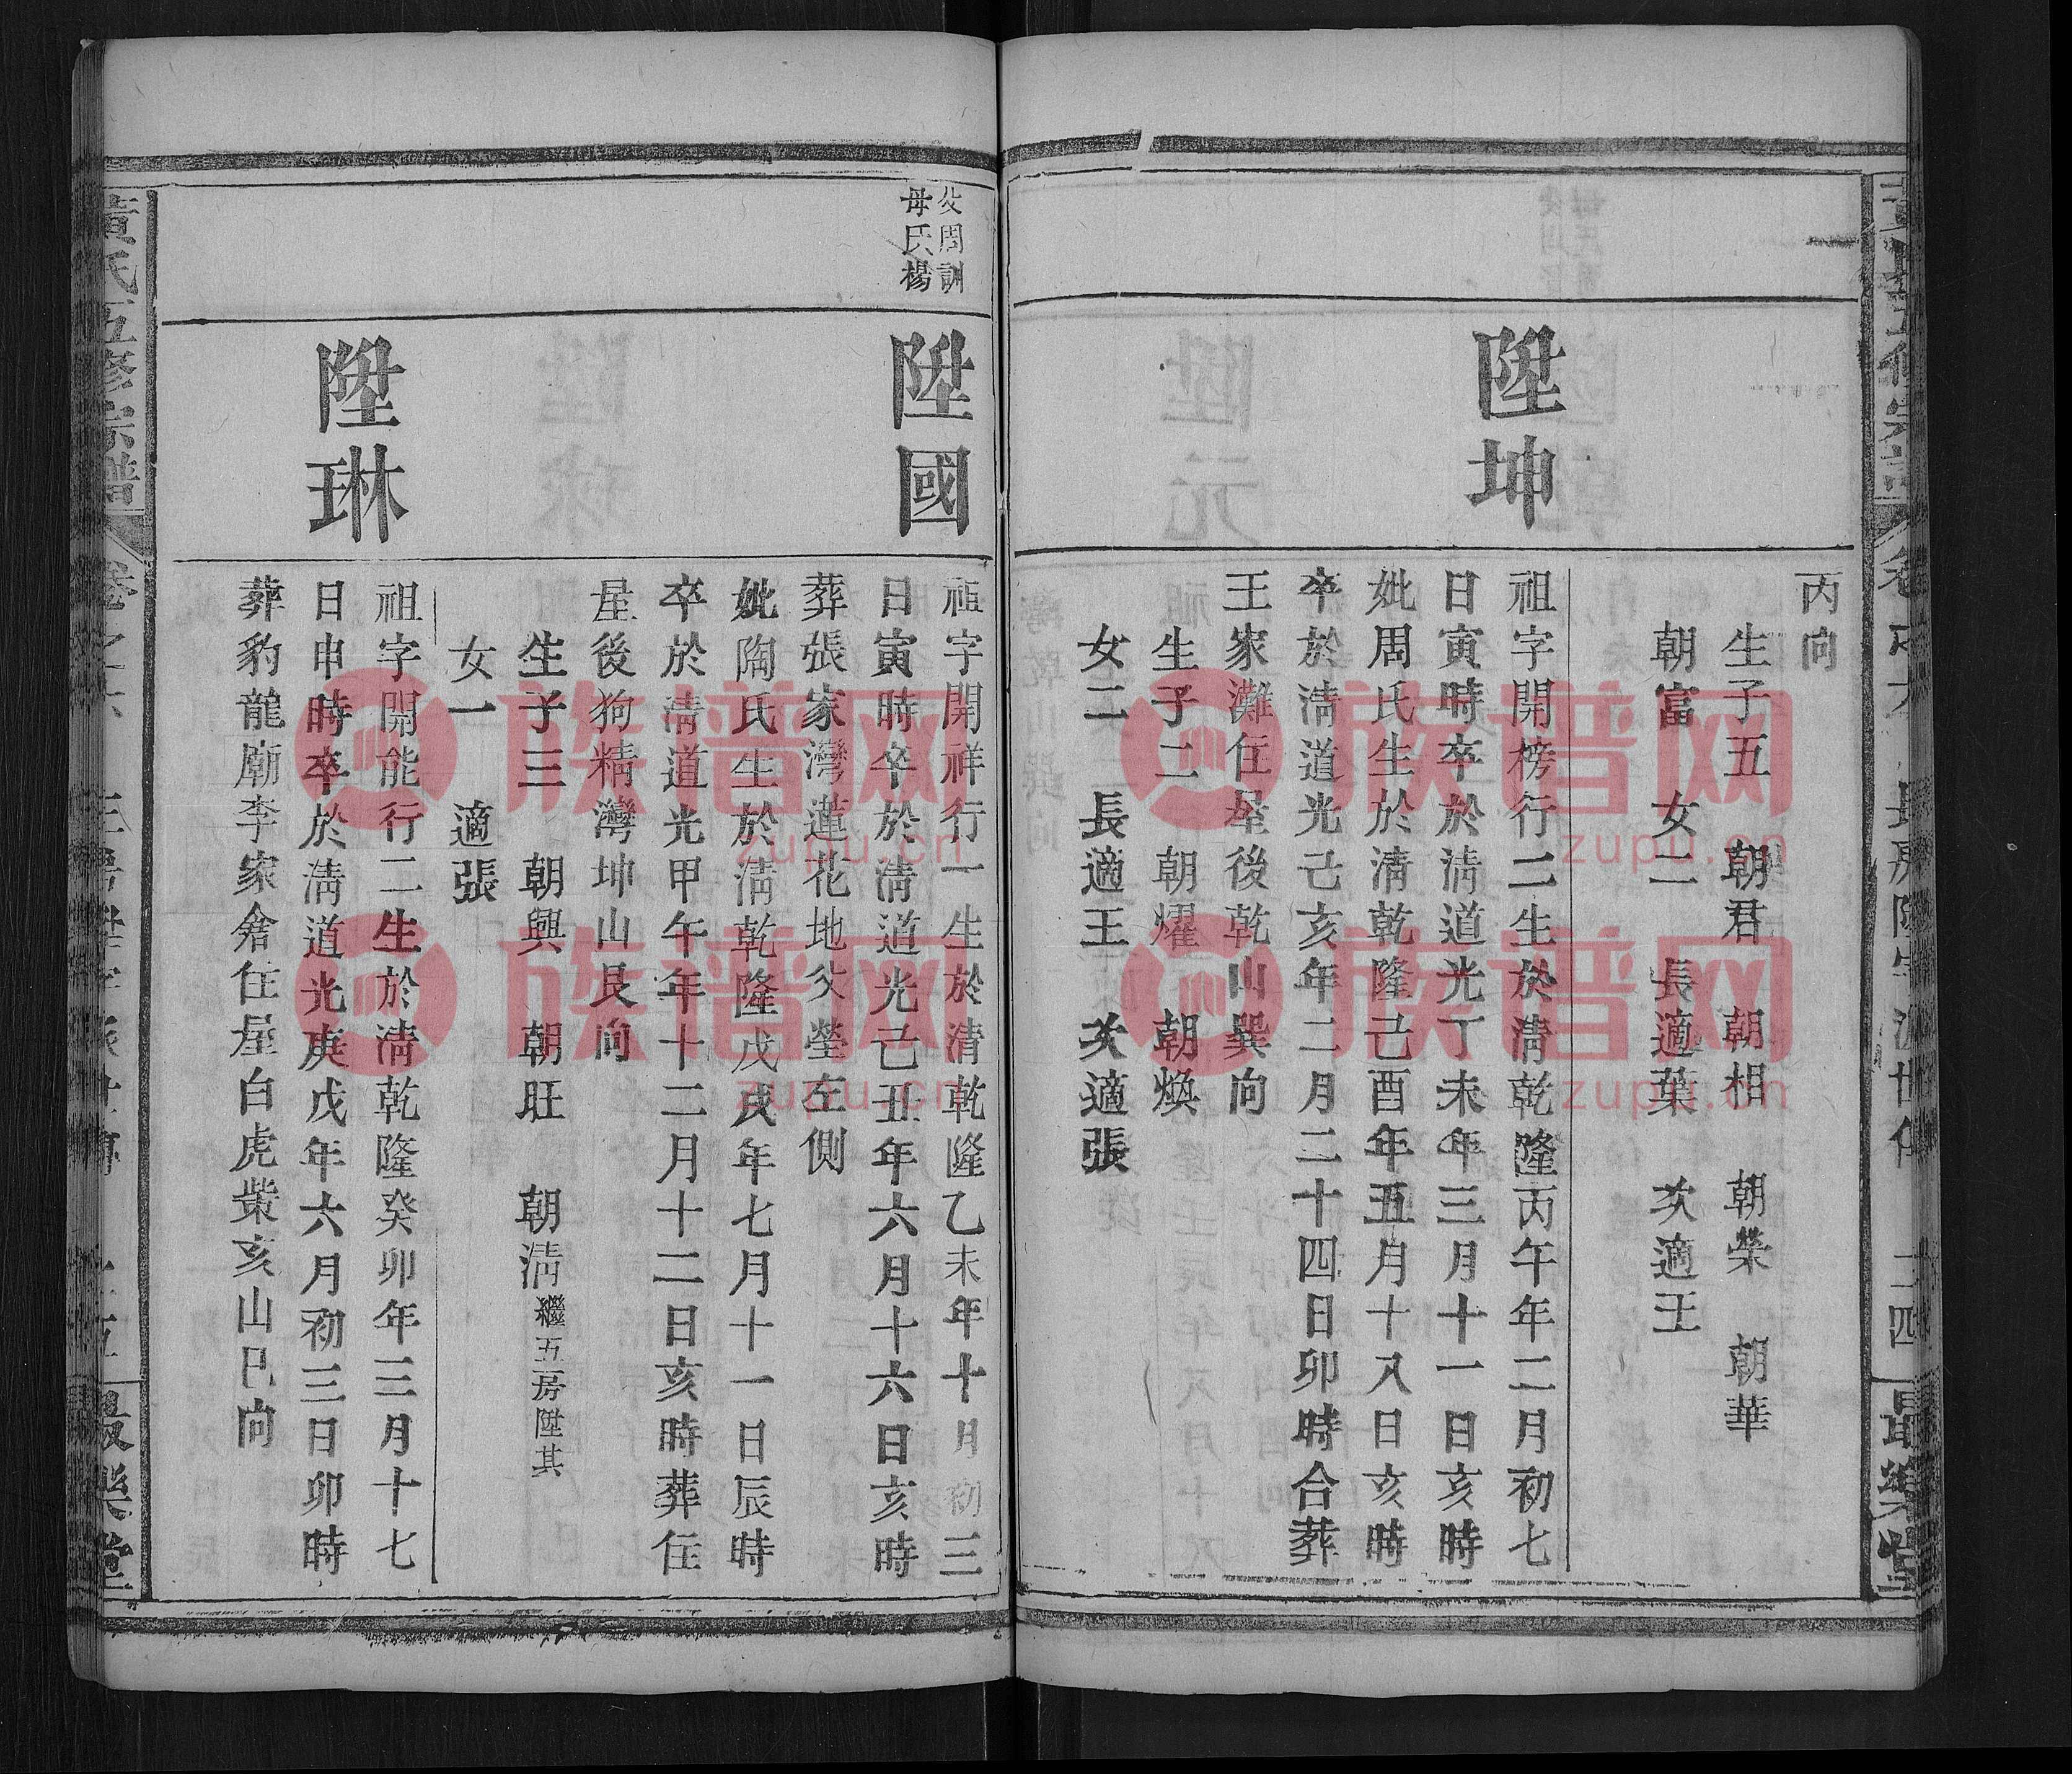 丙向
生子五　朝君　朝相　朝榮　朝華
朝富　女二　長適葉　次適王
陞坤
祖字開榜行二生於清乾隆丙午年二月初七
日寅時卒於清道光丁未年三月十一日亥時
妣周氏生於清乾隆己酉年五月十八日亥時
卒於清道光己亥年二月二十四日卯時合葬
王家灘住屋後乾山巽向
生子二　朝燿　朝煥
女二　長適王　次適張
二四
最樂堂
父周訓
母氏楊
陞國
祖字開祥行一生於清乾隆乙未年十月初三
日寅時卒於清道光己丑年六月十六日亥時
葬張家灣蓮花地父塋左側
妣陶氏生於清乾隆戊戌年七月十一日辰時
卒於清道光甲午年十二月十二日亥時葬住
屋後狗精灣坤山艮向
生子三　朝興　朝旺　朝清繼五房陞其
女一　適張
陞琳
祖字開能行二生於清乾隆癸卯年三月十七
日申時卒於清道光庚戌年六月初三日卯時
葬豹龍廟李家舍住屋白虎柴亥山巳向
黃氏五修宗譜
卷之六
最樂堂
族谱网
zupu.cn
族谱网
zupu.cn
族谱网
zupu.cn
族谱网
zupu.cn